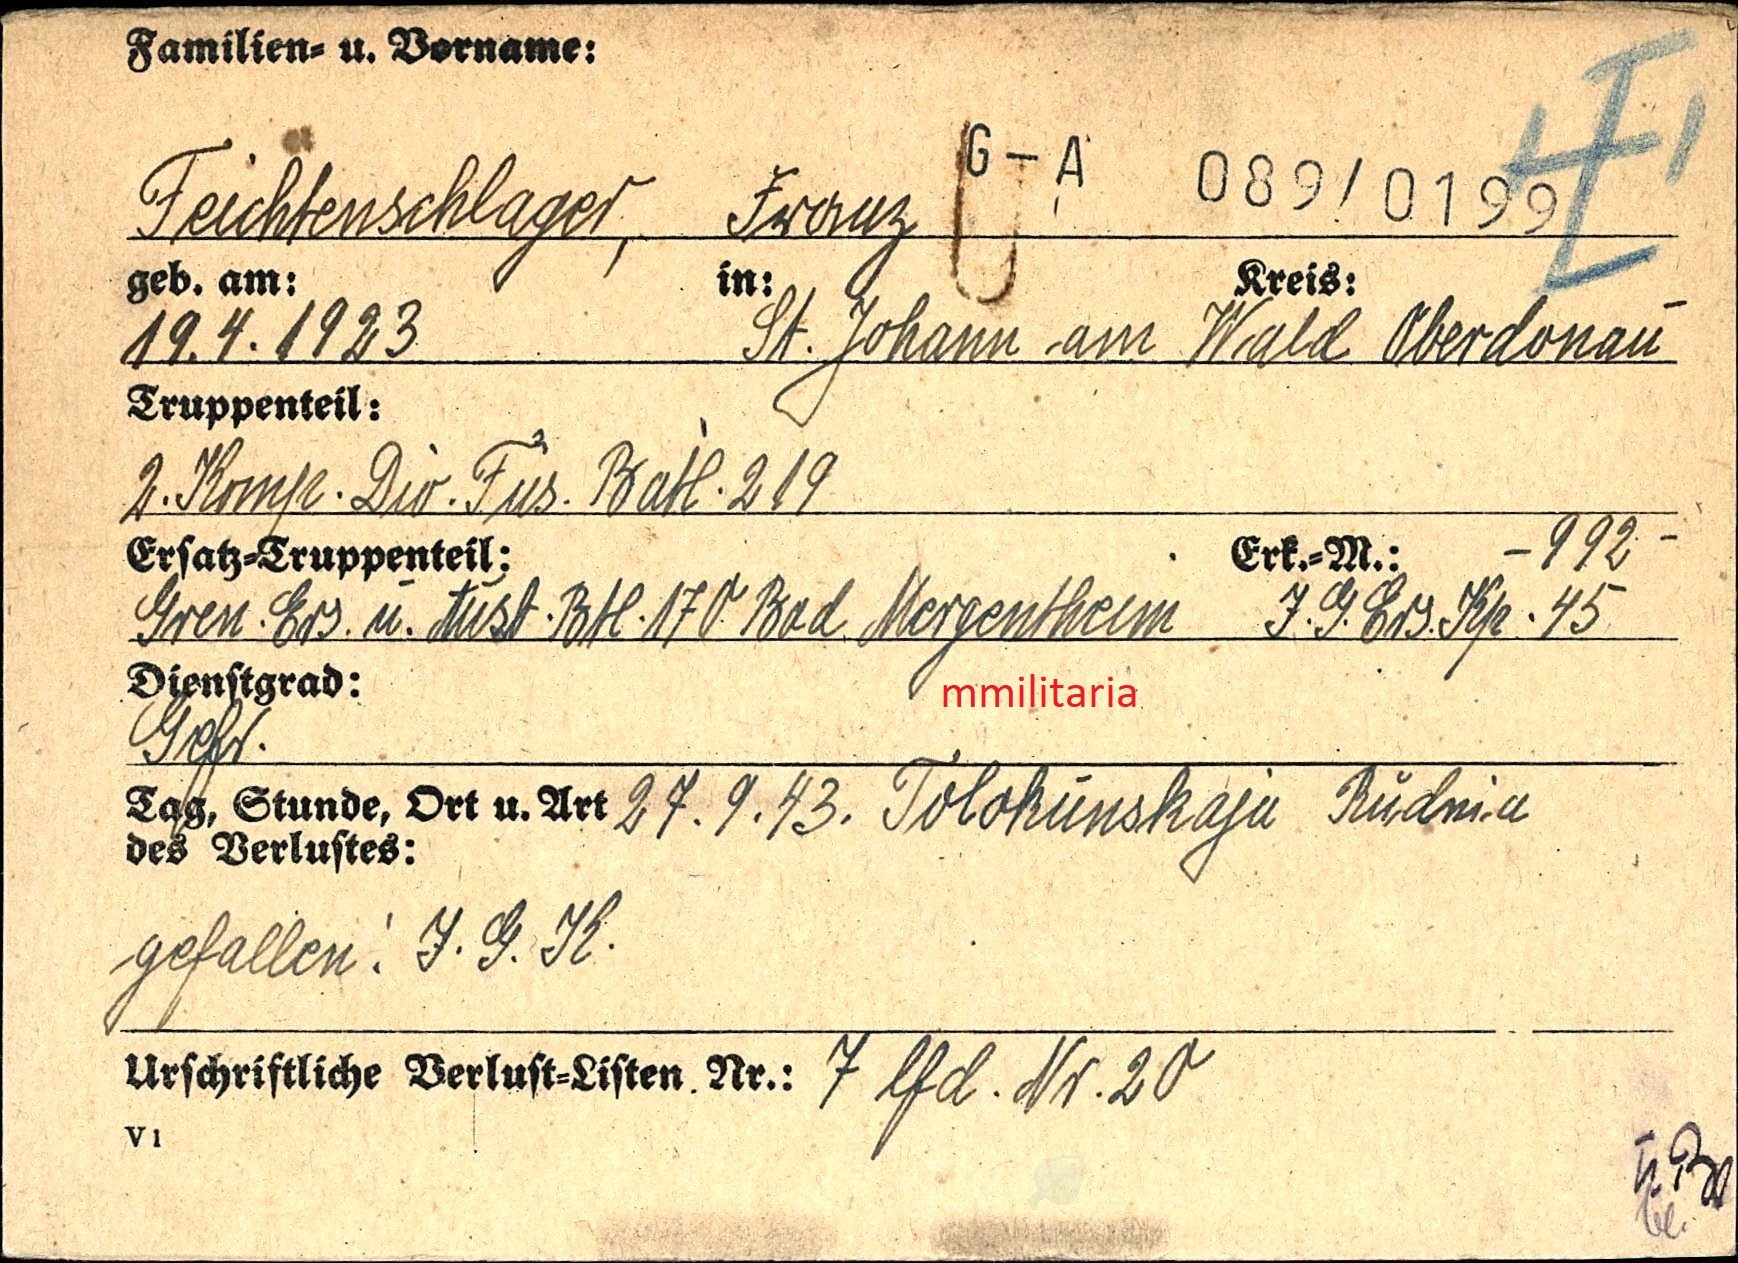 Familien- u. Vorname:
Feichtenschlager, Franz G-A 089/0199
geb. am: in: Kreis:
19.4.1923 St. Johann am Wald Oberdonau
Truppenteil:
2. Komp. Div. Füs. Batl. 219
Ersatz-Truppenteil: Erk.-M.: -992-
Gren. Ers. u. Ausb. Btl. 170 Bad Mergentheim J.G. Ers. Kp. 45
Dienstgrad:
mmilitaria
Gefr.
Tag, Stunde, Ort u. Art 27.9.43. Tolokunskaja Rudnia
des Verlustes:
gefallen: J. G. K.
Urschriftliche Verlust-Listen Nr.: 7 lfd. Nr. 20
V 1